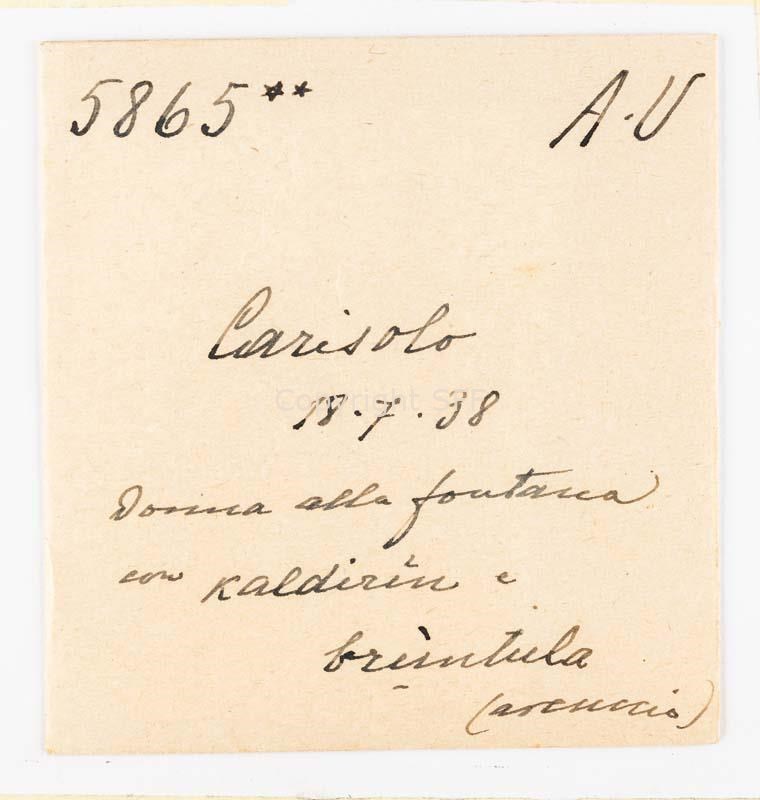 5865** A.V
Carisolo
18.7.38
Donna alla fontana
con kaldirín e
brùntula
(arcuccio)